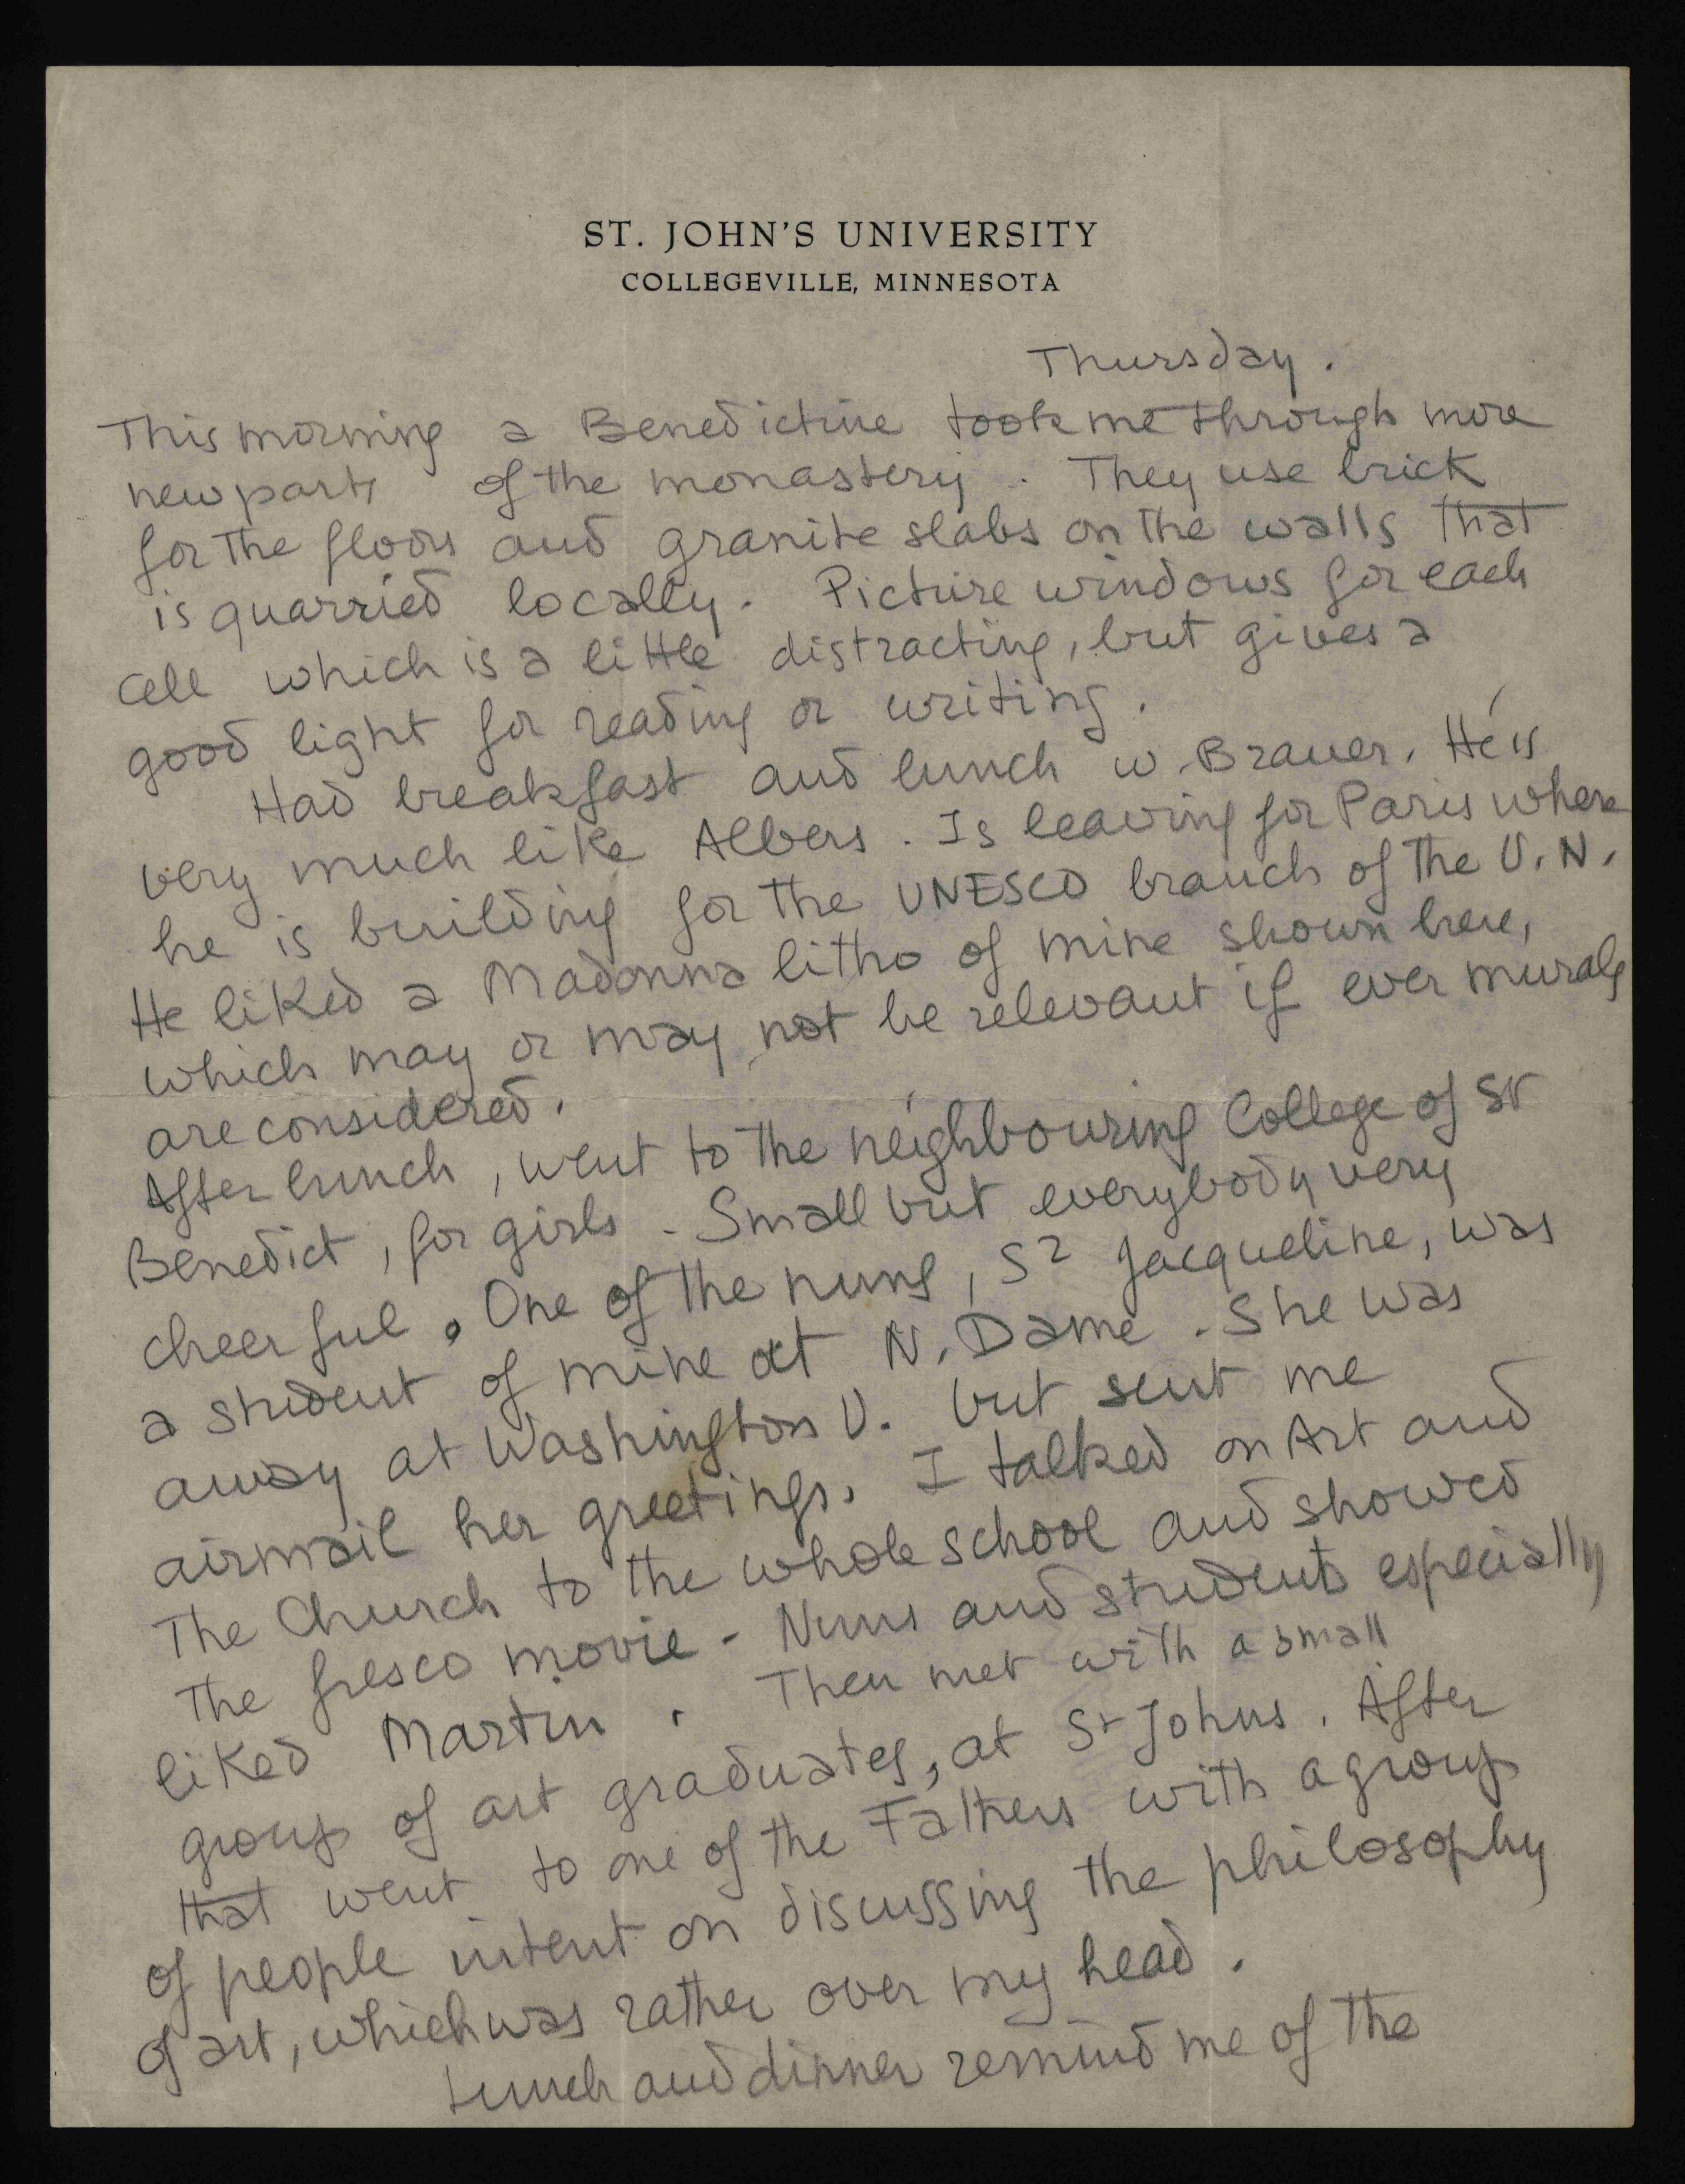 ST. JOHN'S UNIVERSITY
COLLEGEVILLE, MINNESOTA
Thursday.
This morning a Benedictine took me through more
new parts of the monastery. They use brick
for the floors and granite slabs on the walls that
is quarried locally. Picture windows for each
cell which is a little distracting, but gives a
good light for reading or writing.
Had breakfast and lunch w. Brauer. He is
very much like Albers. Is leaving for Paris where
he is building for the UNESCO branch of the U.N.
He liked a Madonna litho of mine shown here,
which may or may not be relevant if ever murals
are considered.
After lunch, went to the neighbouring College of St
Benedict, for girls. Small but everybody very
cheerful. One of the nuns, Sr Jacqueline, was
a student of mine at N. Dame. She was
away at Washington U. but sent me
airmail her greetings. I talked on Art and
The Church to the whole school and showed
The fresco movie - Nuns and students especially
liked Martin. Then met with a small
group of art graduates, at St Johns. After
that went to one of the Fathers with a group
of people intent on discussing the philosophy
of art, which was rather over my head.
Lunch and dinner remind me of the